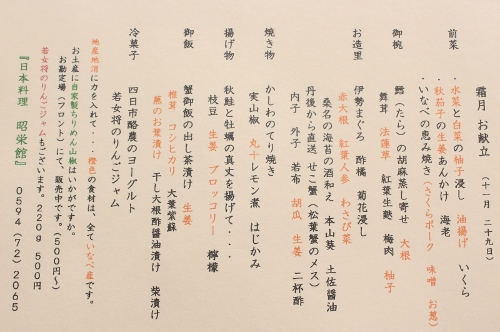 霜月 お献立 (十一月 二十九日)
前菜
・水菜と白菜の柚子浸し 油揚げ いくら
・秋茄子の生姜あんかけ 海老
・いなべの恵み焼き(さくらポーク 味噌 お葱)
御椀
鱈(たら)の胡麻蒸し寄せ 大根
舞茸 法蓮草 紅葉生麩 梅肉 柚子
お造里
伊勢まぐろ 酢橘 菊花浸し
赤大根 紅葉人参 わさび菜
桑名の海苔の酒和え 本山葵 土佐醤油
丹後から直送 せこ蟹(松葉蟹のメス)
内子 外子 若布 胡瓜 生姜 二杯酢
焼き物
かしわのてり焼き
実山椒 丸十レモン煮 はじかみ
揚げ物
秋鮭と牡蠣の真丈を揚げて・・・
枝豆 生姜 ブロッコリー 檸檬
御飯
蟹御飯の出し茶漬け 生姜
椎茸 コシヒカリ 大葉紫蘇
蕪のお葉漬け 干し大根酢醤油漬け 柴漬け
冷菓子
四日市酪農のヨーグルト
若女将のりんごジャム
地産地消に力を入れて・・・橙色の食材は、全ていなべ産です。
お土産に自家製ちりめん山椒はいかがですか。
お勘定場(フロント)にて、販売中です。(500円〜)
若女将のりんごジャムもございます。220g 500円
『日本料理 昭栄館』 0594(72)2065